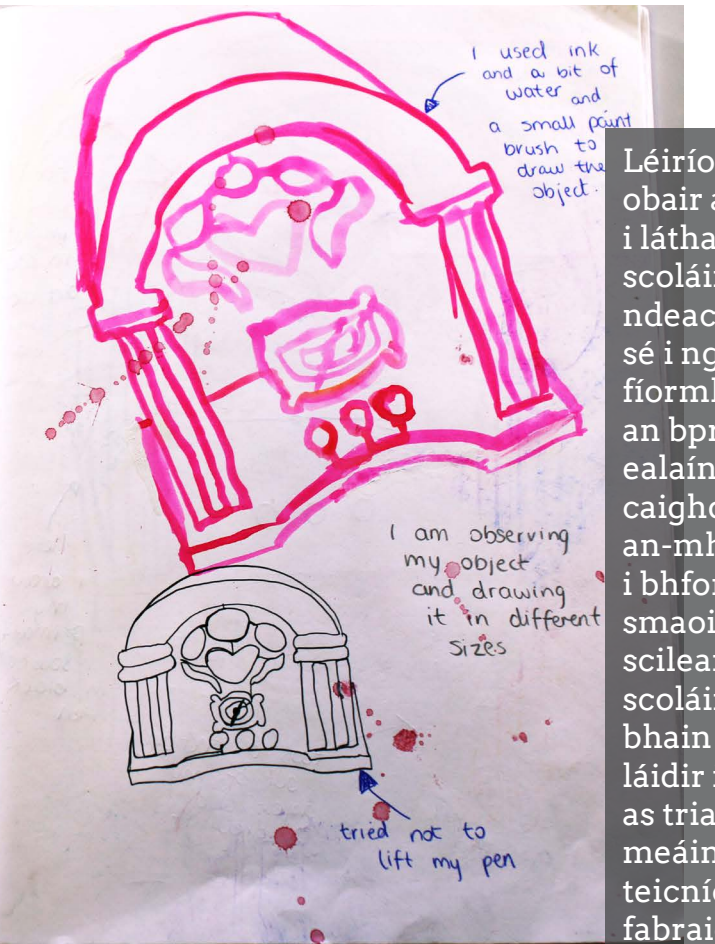 I used ink
and a bit of
water and
a small paint
brush to
draw the
object.
I am observing
my object
and drawing
it in different
sizes
tried not to
lift my pen
Léirío
obair a
i látha
scoláir
ndeac
sé i ng
an bpr
ealaín
caighd
an-mh
i bhfor
smaoi
scilea
scoláir
bhain
láidir
as tria
meáin
teicní
fabrai